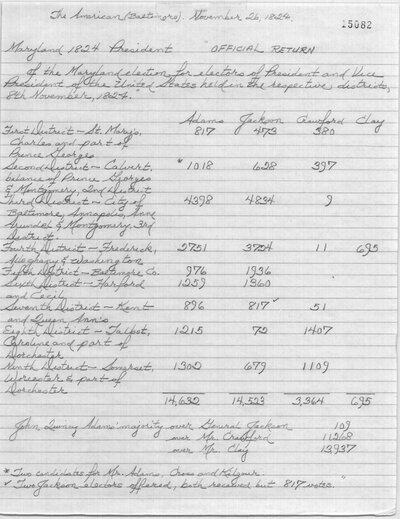 The American (Baltimore). November 26, 1824.
15082
Maryland 1824 President "OFFICIAL RETURN
of the Maryland election for electors of President and Vice
President of the United States held in the respective districts,
8th November, 1824.
Adams Jackson Crawford Clay
First District — St. Mary's, 817 473 380
Charles and part of
Prince Georges
Second District — Calvert, *1018 628 397
balance of Prince Georges
& Montgomery, 2nd District
Third District — City of 4398 4834 9
Baltimore, Annapolis, Anne
Arundel & Montgomery, 3rd
District.
Fourth District — Frederick, 2751 3724 11 695
Alleghany & Washington
Fifth District — Baltimore Co. 976 1936
Sixth District — Harford 1259 1360
and Cecil
Seventh District — Kent 896 817✓ 51
and Queen Ann's
Eighth District — Talbot, 1215 72 1407
Caroline and part of
Dorchester
Ninth District — Somerset, 1302 679 1109
Worcester & part of
Dorchester
14,632 14,523 3,364 695
John Quincy Adams' majority over General Jackson 109
over Mr. Crawford 11,268
over Mr. Clay 13,937
* Two candidates for Mr. Adams, Cross and Kilgour.
✓ Two Jackson electors offered, both received but 817 votes."